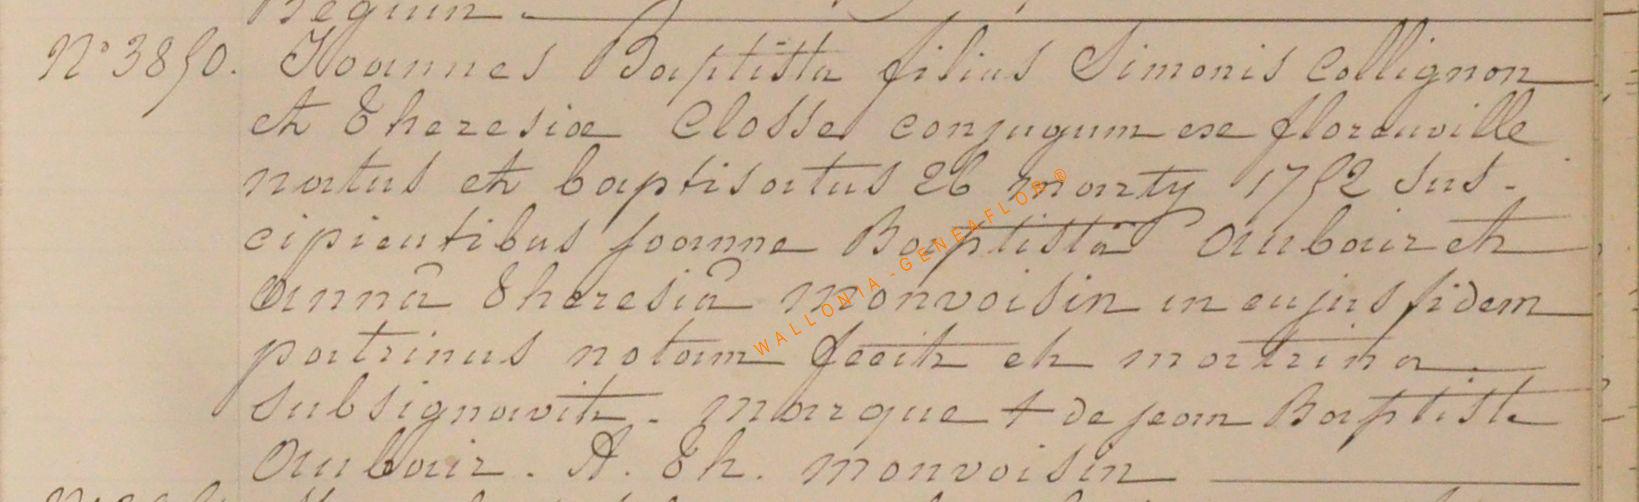 Beguin.
N° 3850. Joannes Baptista filius Simonis Collignon
et Theresiæ Closse conjugum ex florenville
natus et baptisatus 26 marty 1752 sus-
cipientibus joanne Baptistâ Aubair et
Annâ Theresiâ Monvoisin in cujus fidem
patrinus notam fecit et matrina
subsignavit. Marque + de jean Baptiste
Aubair. A. Th. Monvoisin
WALLONIA-GENEAFLOR®